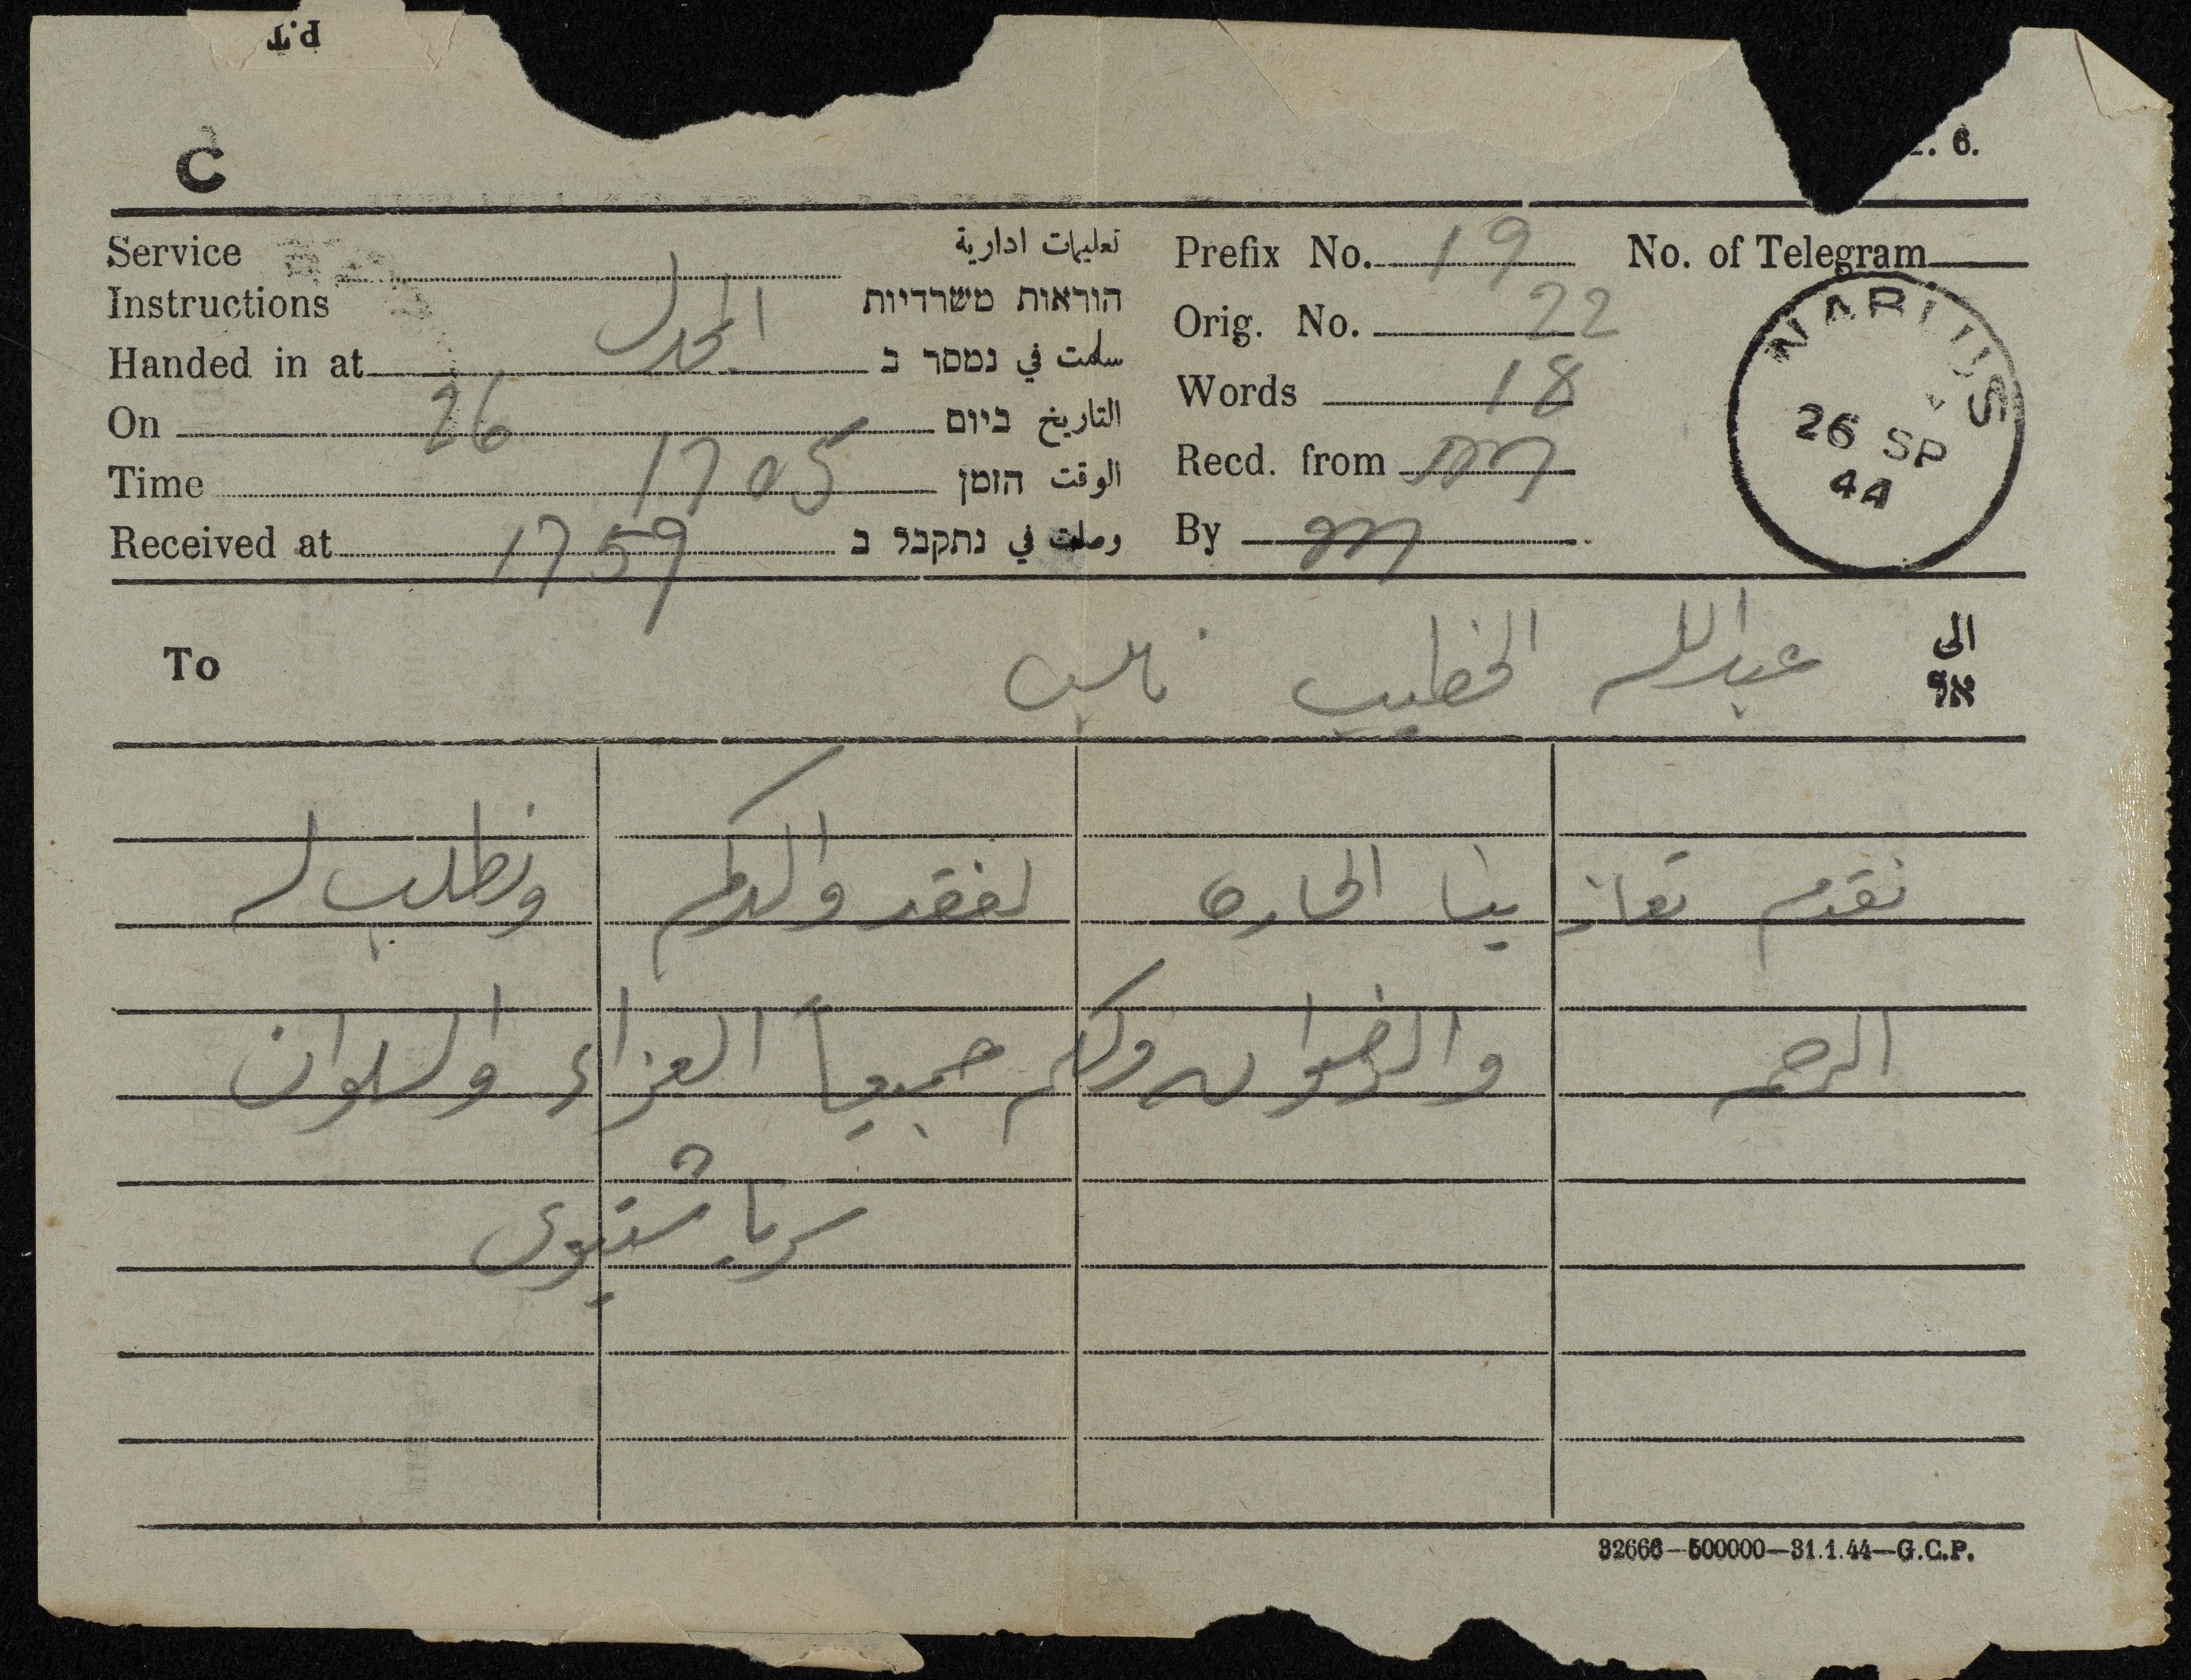 P.T
C
. 6.
Service
Instructions
تعليمات ادارية
הוראות משרדיות
Handed in at المجدل سلمت في נמסר ב
On 26 التاريخ ביום
Time 1705 الوقت הזמן
Received at 1759 وصلت في נתקבל ב
Prefix No. 19 No. of Telegram
Orig. No. 22
Words 18
Recd. from
By
NABLUS
26 SP
44
To عبدالله الخطيب نابلس الى
אל
نقدم تعازينا الحارة لفقد والدكم ونطلب له
الرحمه والرضوان ولكم جميعاً العزاء والسلوان
شتيوى
32666-500000-31.1.44-G.C.P.